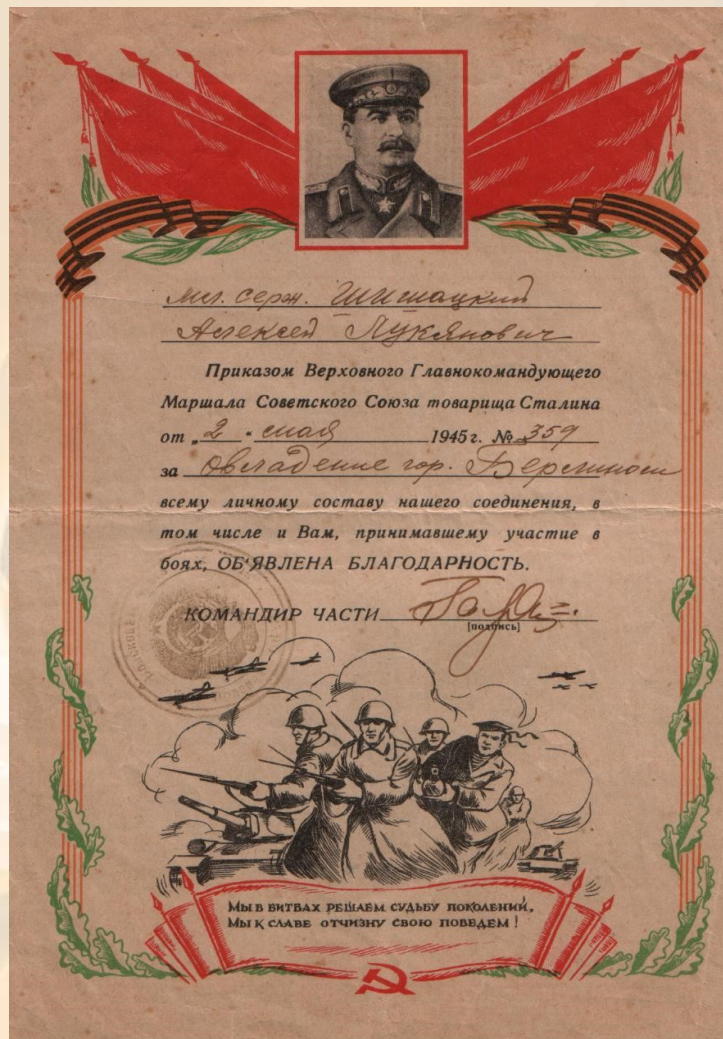 мл. серж. Шишацкий
Алексей Лукянович
Приказом Верховного Главнокомандующего
Маршала Советского Союза товарища Сталина
от „2“ мая 1945 г. № 359
за овладение гор. Берлином
всему личному составу нашего соединения, в
том числе и Вам, принимавшему участие в
боях, ОБ'ЯВЛЕНА БЛАГОДАРНОСТЬ.
КОМАНДИР ЧАСТИ
[подпись]
МЫ В БИТВАХ РЕШАЕМ СУДЬБУ ПОКОЛЕНИЙ,
МЫ К СЛАВЕ ОТЧИЗНУ СВОЮ ПОВЕДЕМ!